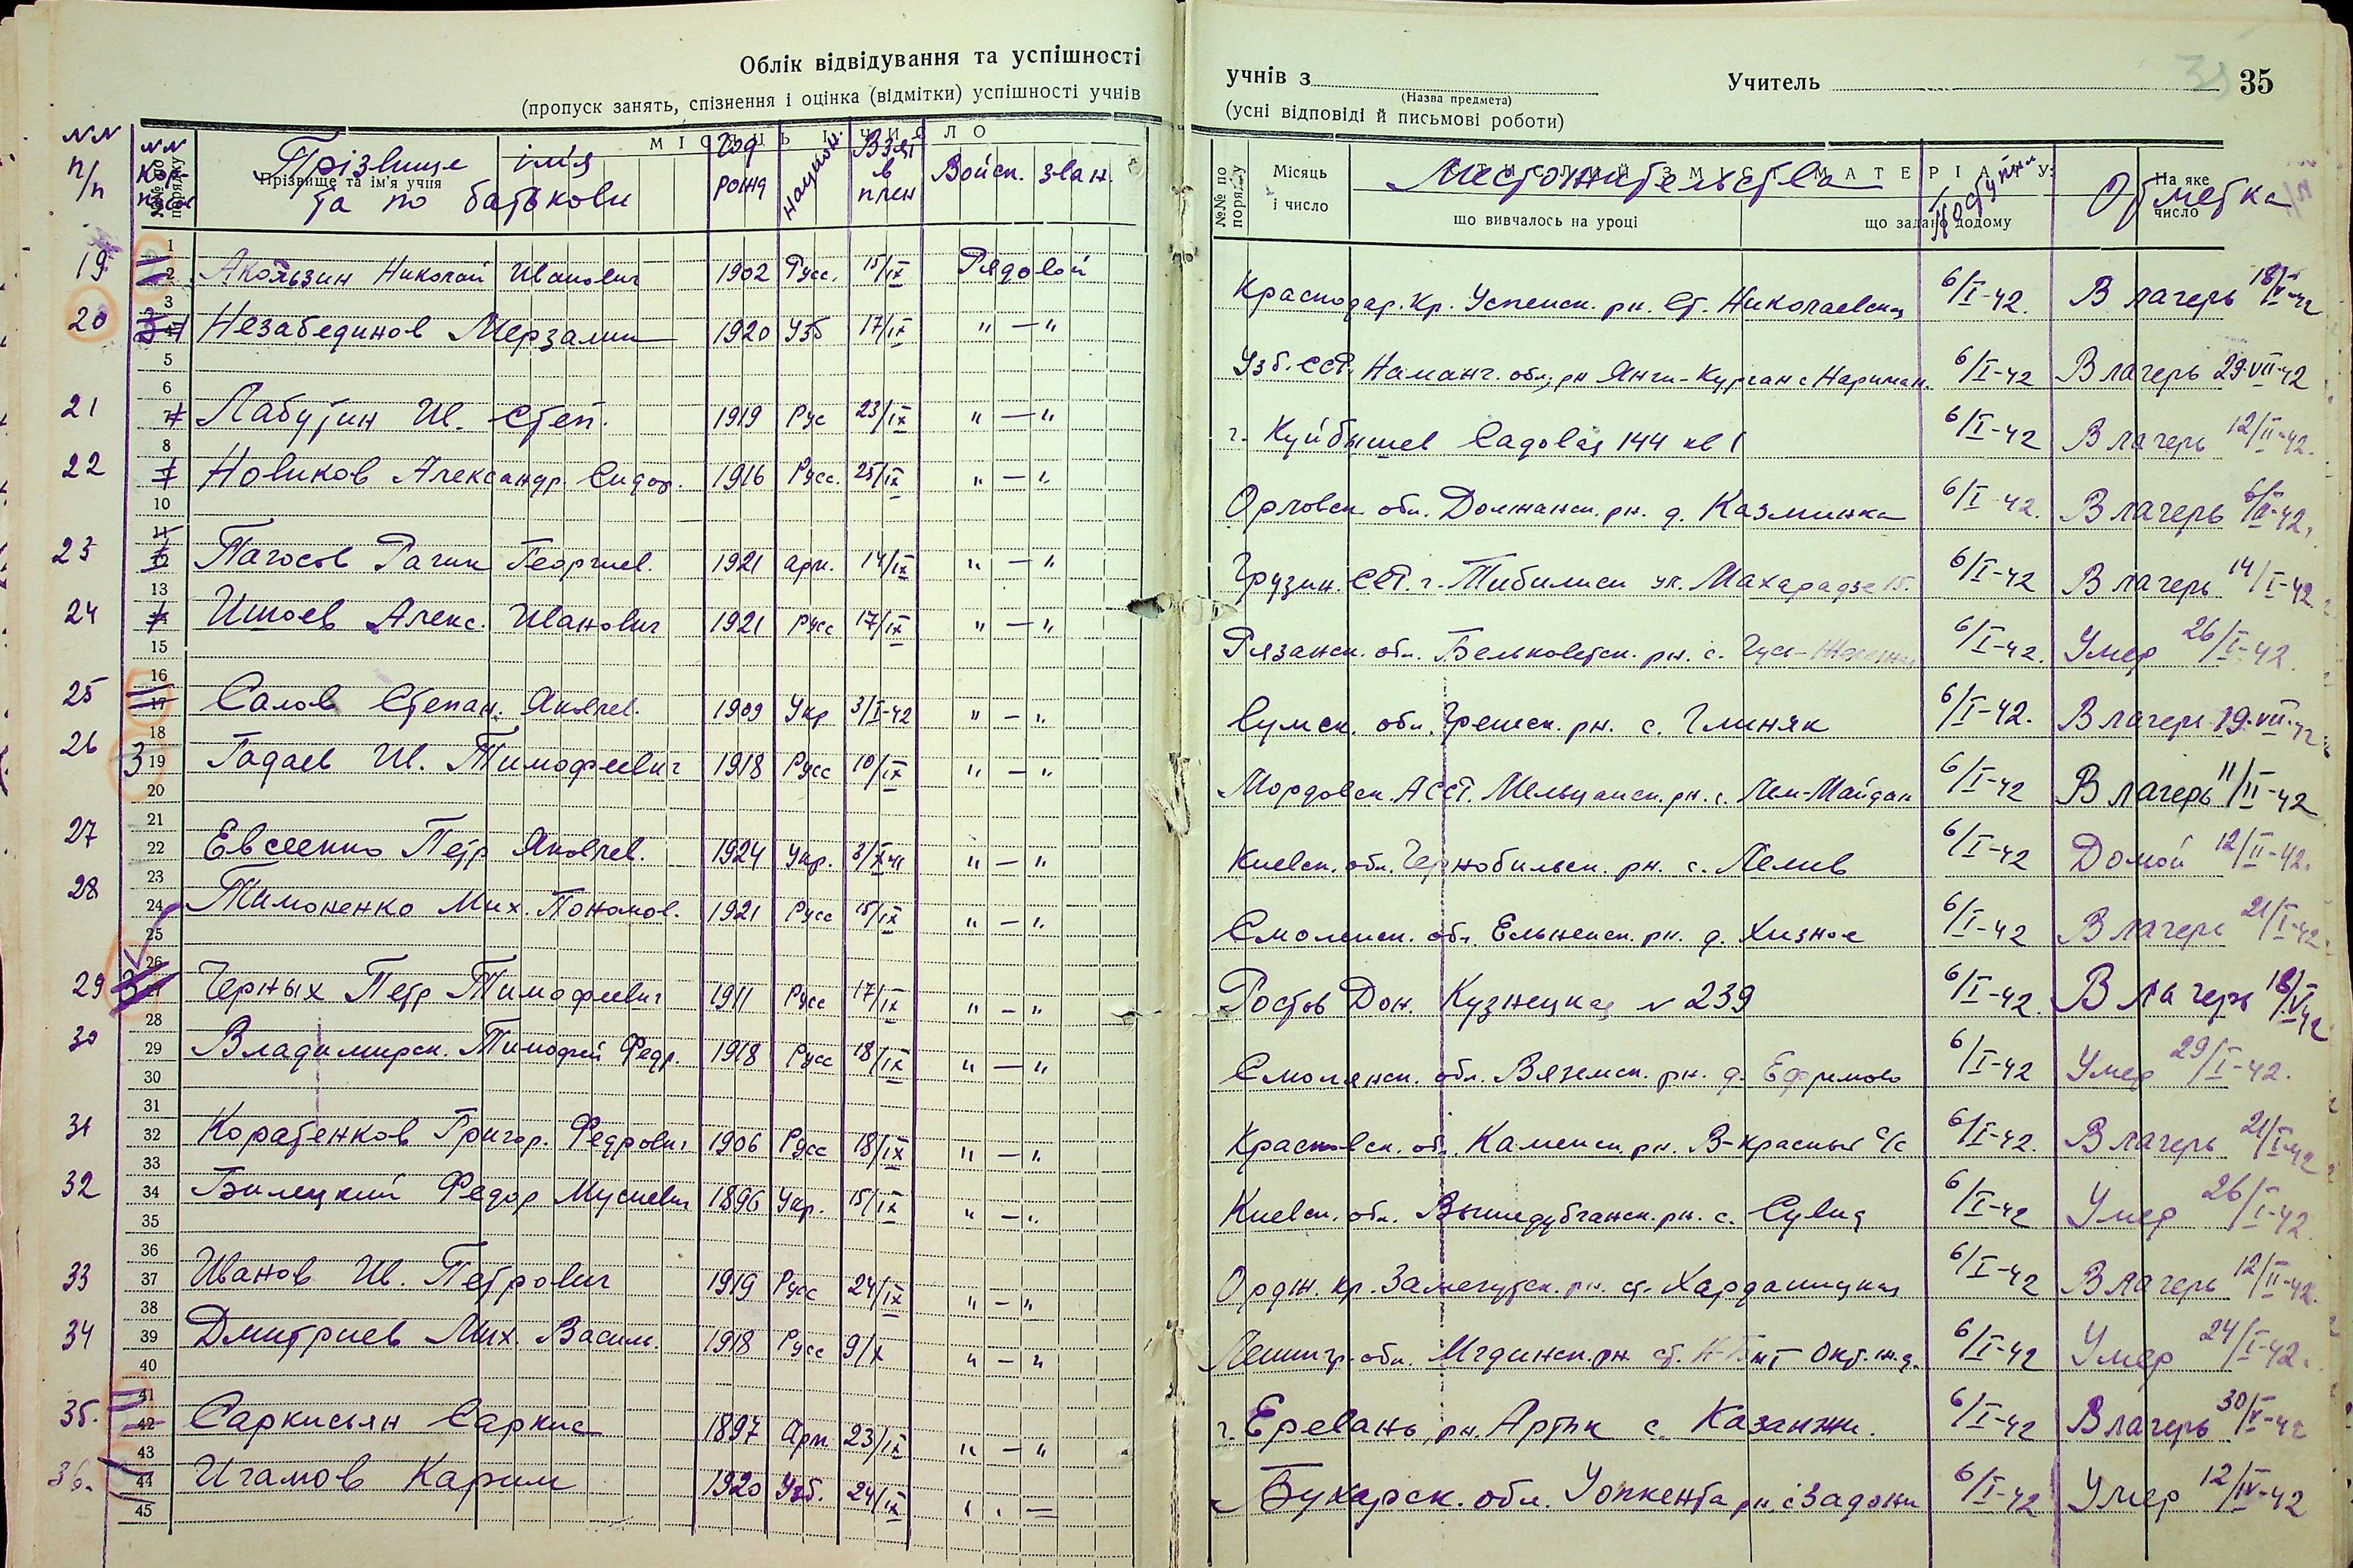 Облік відвідування та успішності
(пропуск занять, спізнення і оцінка (відмітки) успішності учнів
учнів з
(Назва предмета)
Учитель
35
(усні відповіді й письмові роботи)
№№ п/п
Прізвище ім'я та по батькови
Год рожд
национ.
Взят в плен
Войск. зван.
Прізвище та ім'я учня
МІСЯЦЬ І ЧИСЛО
№№ по порядку
Місяць і число
Местожительства
що вивчалось на уроці
що задано додому
На яке число
Отметка
19 Акользин Николай Иванович 1902 Русс. 15/IX Рядовой Краснодар. Кр. Успенск. рн. Ст. Николаевская 6/I-42. В лагерь
20 Незабединов Мерзалим 1920 Узб 17/IX "—" Узб. ССР, Наманг. обл, рн Янги-Курган с Нариман. 6/I-42 В лагерь 29.VII-42
21 Лабутин Ив. Степ. 1919 Рус 23/IX "—" г. Куйбышев Садовая 144 кв 1 6/I-42 В лагерь 12/II-42.
22 Новиков Александр. Сидор. 1916 Русс. 25/IX "—" Орловск. обл. Должанск. рн. д. Казминка 6/I-42. В лагерь
23 Пагосов Рагик Георгиев. 1921 арм. 14/IX "—" Грузин. ССР. г. Тибилиси ул. Махарадзе 15. 6/I-42 В лагерь 14/I-42
24 Алекс. Иванович 1921 Русс 17/IX "—" Рязанск. обл. Бельковетск. рн. с. 6/I-42. Умер 26/I-42.
25 Салов Степан. Яковлев. 1909 Укр 3/I-42 "—" Сумск. обл. рн. с. Глиняк 6/I-42. В лагерь 19.VII-42
26 3 Гадаев Ив. Тимофеевич 1918 Русс 10/IX "—" Мордовск. АССР. Мельцанск. рн. с. Лем-Майдан 6/I-42 В лагерь 11/II-42
27 Евсеенко Петр Яковлев. 1924 Укр. 3/X-41 "—" Киевск. обл. Чернобильск. рн. с. Лелив 6/I-42 Домой 12/II-42.
28 Тимоненко Мих. 1921 Русс 15/IX "—" Смоленск. обл. Ельненск. рн. д. Хизное 6/I-42 В лагерь 21/I-42.
29 Черных Петр Тимофеевич 1911 Русс 17/IX "—" Ростов Дон. Кузнецкая № 239 6/I-42. В лагерь
30 Владимирск. Тимофей Федр. 1918 Русс 18/IX "—" Смолянск. обл. Вяземск. рн. д. Ефремово 6/I-42 Умер 29/I-42.
31 Коратенков Григор. Федрович 1906 Русс 18/IX "—" Каменск рн. В-красный с/с 6/I-42. В лагерь 21/I-42
32 Билецкий Федор Мусиевич 1896 Укр. 15/IX "—" Киевск. обл. рн. с. 6/I-42 Умер 26/I-42.
33 Иванов Ив. Петрович 1919 Русс 24/IX "—" Ордж. кр. рн. ст. 6/I-42 В лагерь 12/II-42.
34 Дмитриев Мих. Васил. 1918 Русс 9/X "—" Ленингр. обл. Мгдинск. рн. ст. Окт. ж.д. 6/I-42 Умер 24/I-42.
35. Саркисьян Саркис 1897 Арм 23/IX "—" г. Еревань, рн. Артик с. Казанжи. 6/I-42 В лагерь 30/V-42
36. Игамов Карим 1920 Узб. 24/IX Бухарск. обл. рн, с 6/I-42 Умер 12/IV-42